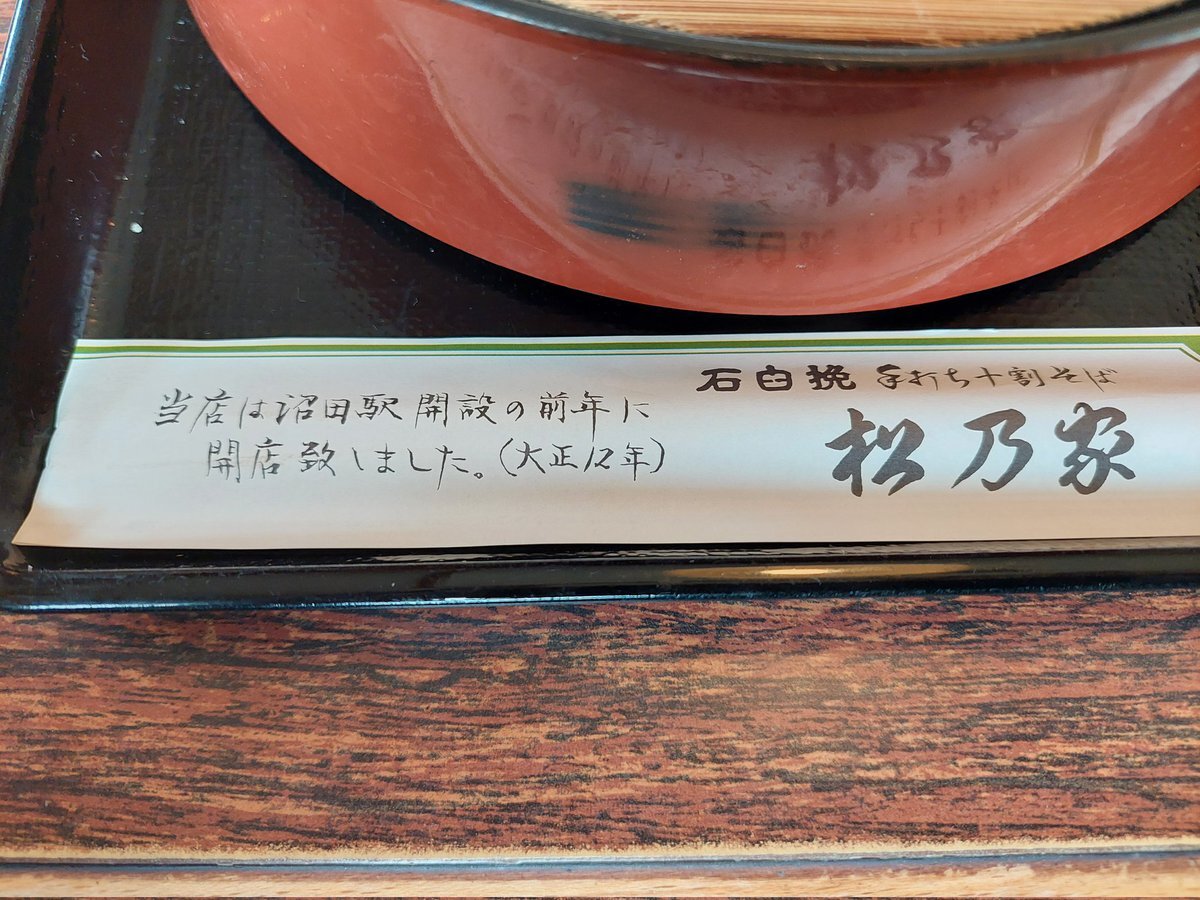 当店は沼田駅開設の前年に
開店致しました。(大正12年)
石臼挽 手打ち十割そば
松乃家